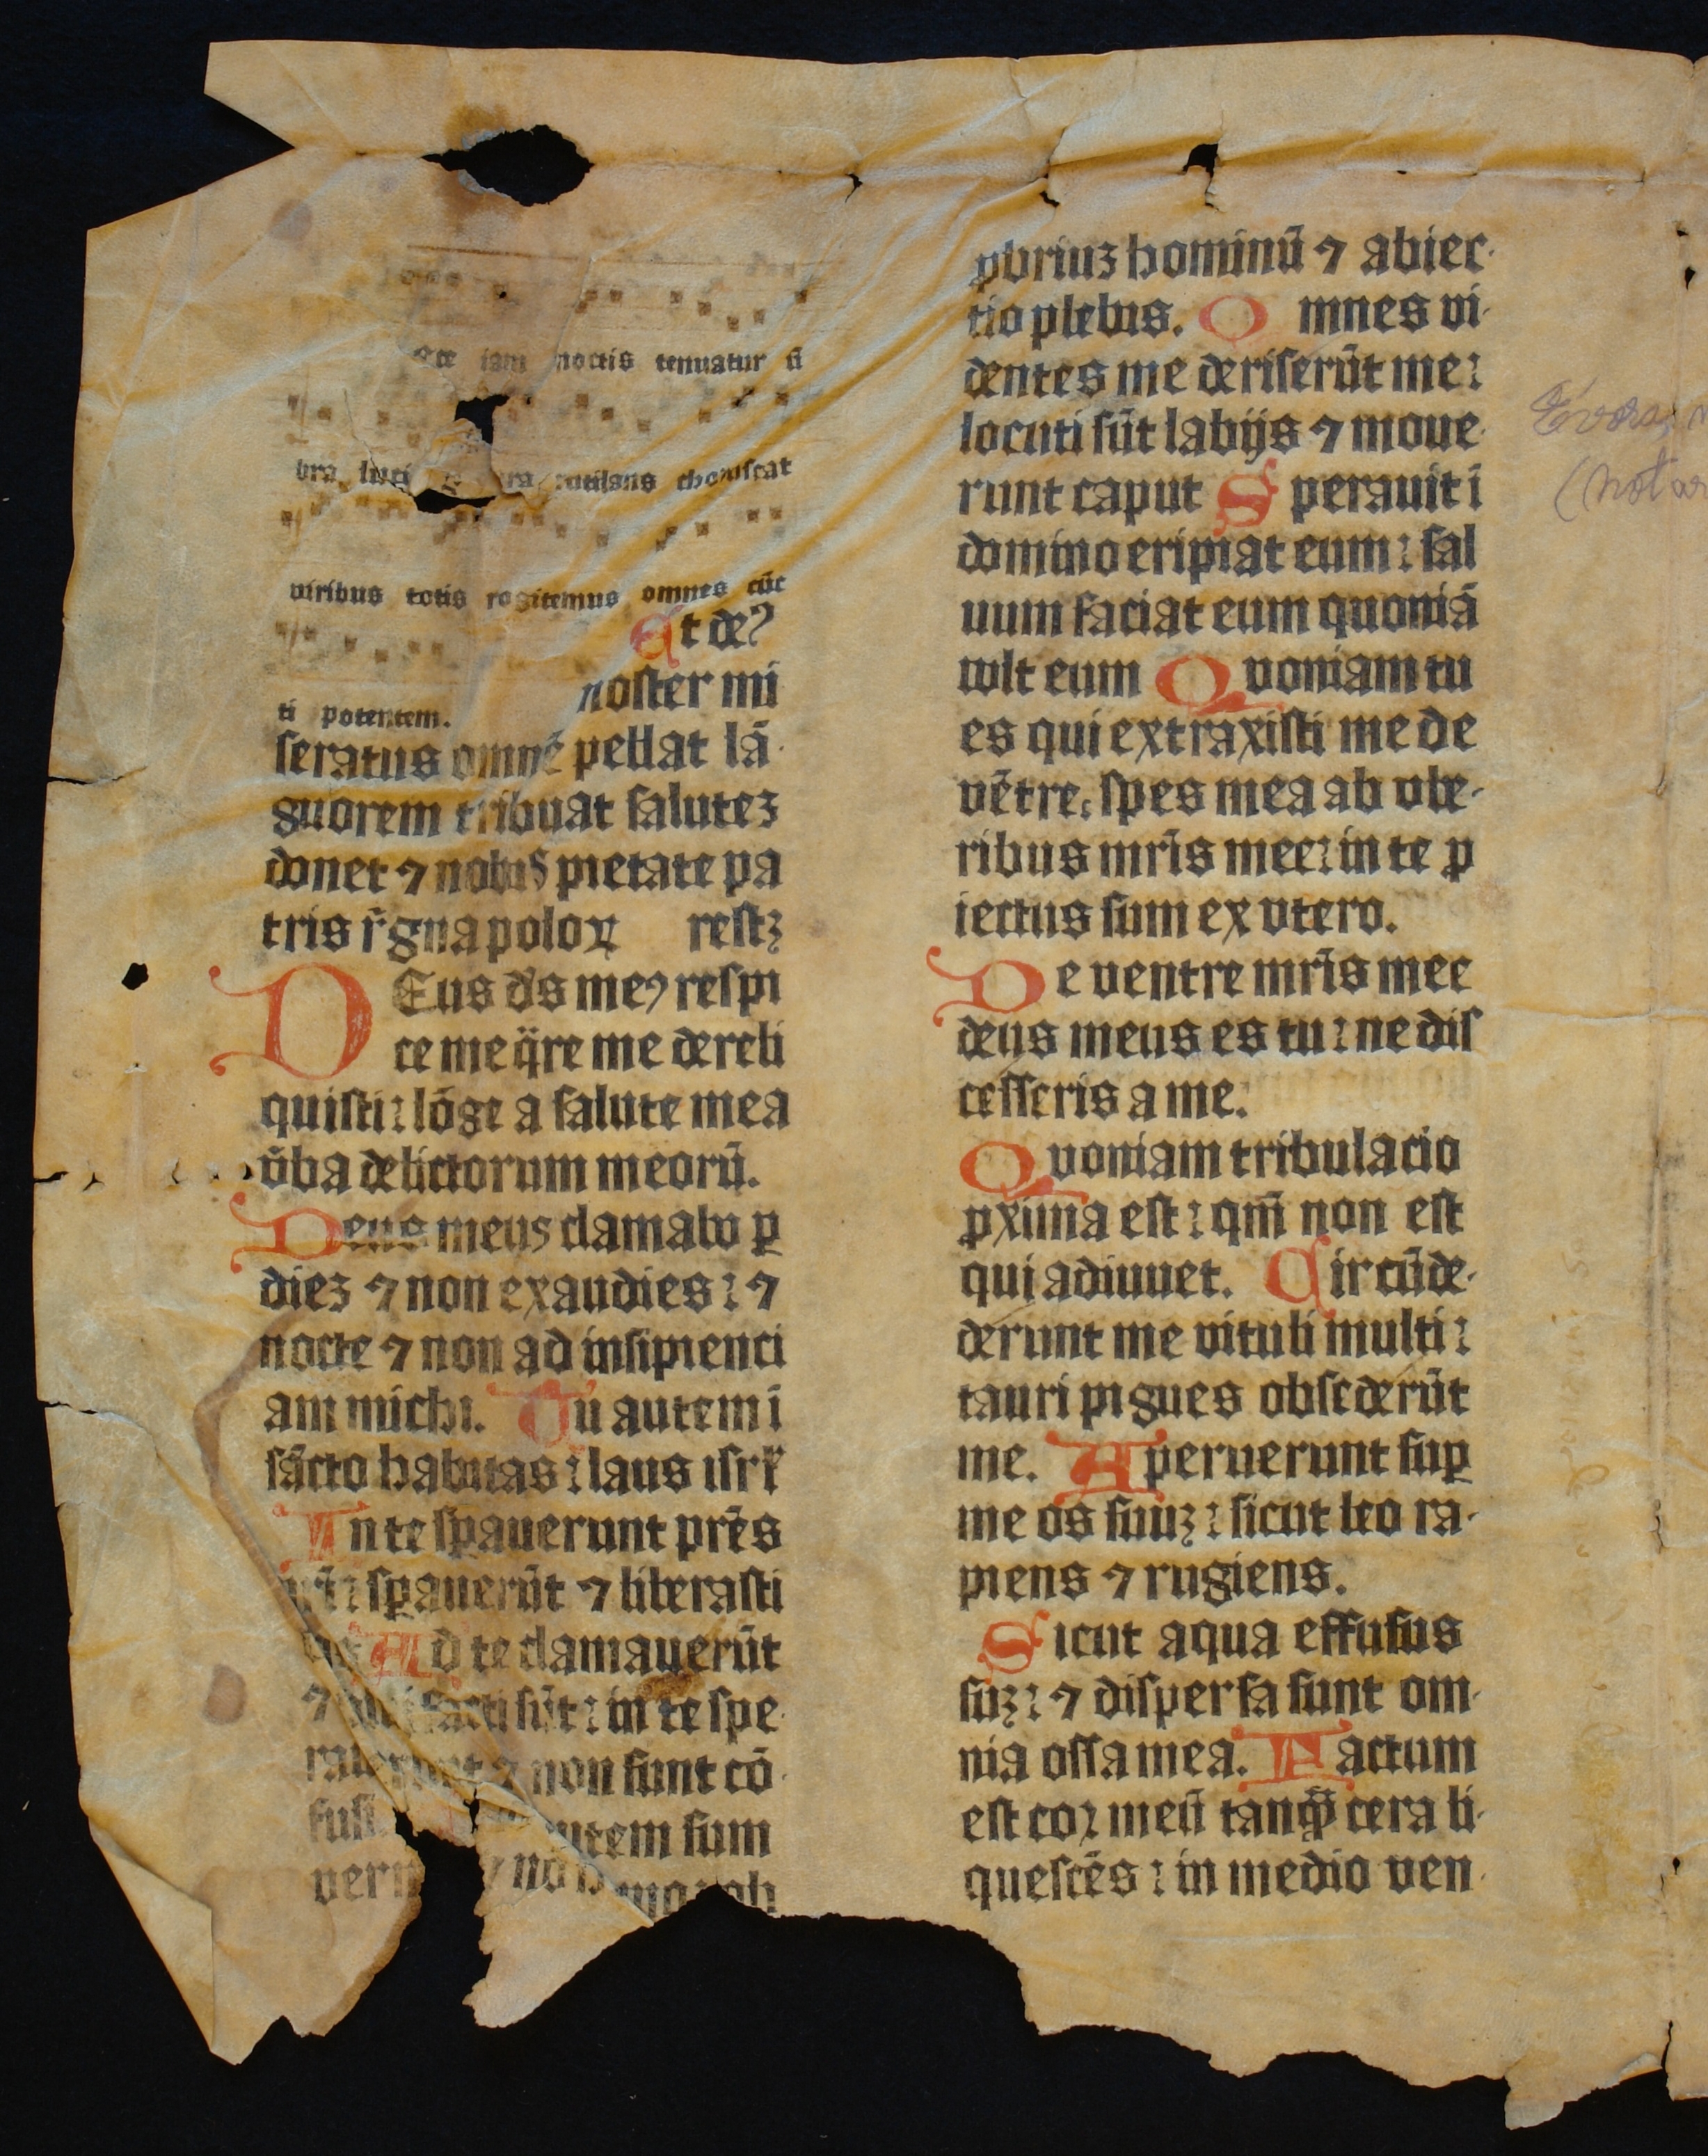 iam noctis tenuatur ū
bra luci ra rutilans choruscat
viribus totis rogitemus omnes cūc
ti potentem.
Ut deꝰ
noster mi
seratus omnē pellat lā
guorem tribuat salutez
donet ⁊ nobis pietate pa
tris r̄gna poloꝝ restꝫ
DEus d̄s meꝰ respi
ce me q̄re me dereli
quisti: lōge a salute mea
v̄ba delictorum meorū.
Deus meus clamabo ꝑ
diez ⁊ non exaudies: ⁊
nocte ⁊ non ad insipienci
am michi. Tu autem ī
sācto habitas: laus isrl̄
In te sꝑauerunt prēs
nr̄i: sꝑauerūt ⁊ liberasti
Ad te clamauerūt
⁊ facti sūt: in te spe
⁊ non sunt cō
fusi utem sum
verm ⁊ no
ꝓbriuz hominū ⁊ abiec
tio plebis. Omnes vi
dentes me deriserūt me:
locuti sūt labijs ⁊ moue
runt caput Sperauit ī
domino eripiat eum: sal
uum faciat eum quoniā
vult eum Quoniam tu
es qui extraxisti me de
vētre: spes mea ab vbe
ribus mr̄is mee: in te ꝓ
iectus sum ex vtero.
De ventre mr̄is mee
deus meus es tu: ne dis
cesseris a me:
Quoniam tribulacio
ꝓxima est: qm̄ non est
qui adiuuet. Circūde
derunt me vituli multi:
tauri pīgues obsederūt
me. Aperuerunt suꝑ
me os suuꝫ: sicut leo ra
piens ⁊ rugiens.
Sicut aqua effusus
suꝫ: ⁊ dispersa sunt om
nia ossa mea. Factum
est coꝛ meū tanꝙ̄ cera li
quescēs: in medio ven
Evora
(not